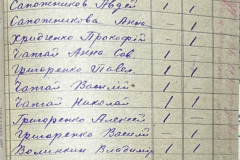 Сапожников Авдей 1 1
Сапожникова Анна 1
Хридченко Прокофий 1 1
Чапгай Анна Сов. 1 1
Григоренко Павел 1 1
Чапгай Василий 1 1
Чапгай Николай 1 1
Григоренко Алексей 1 1
Григоренко Васил 1 1
Волинкин Владимир 1 1